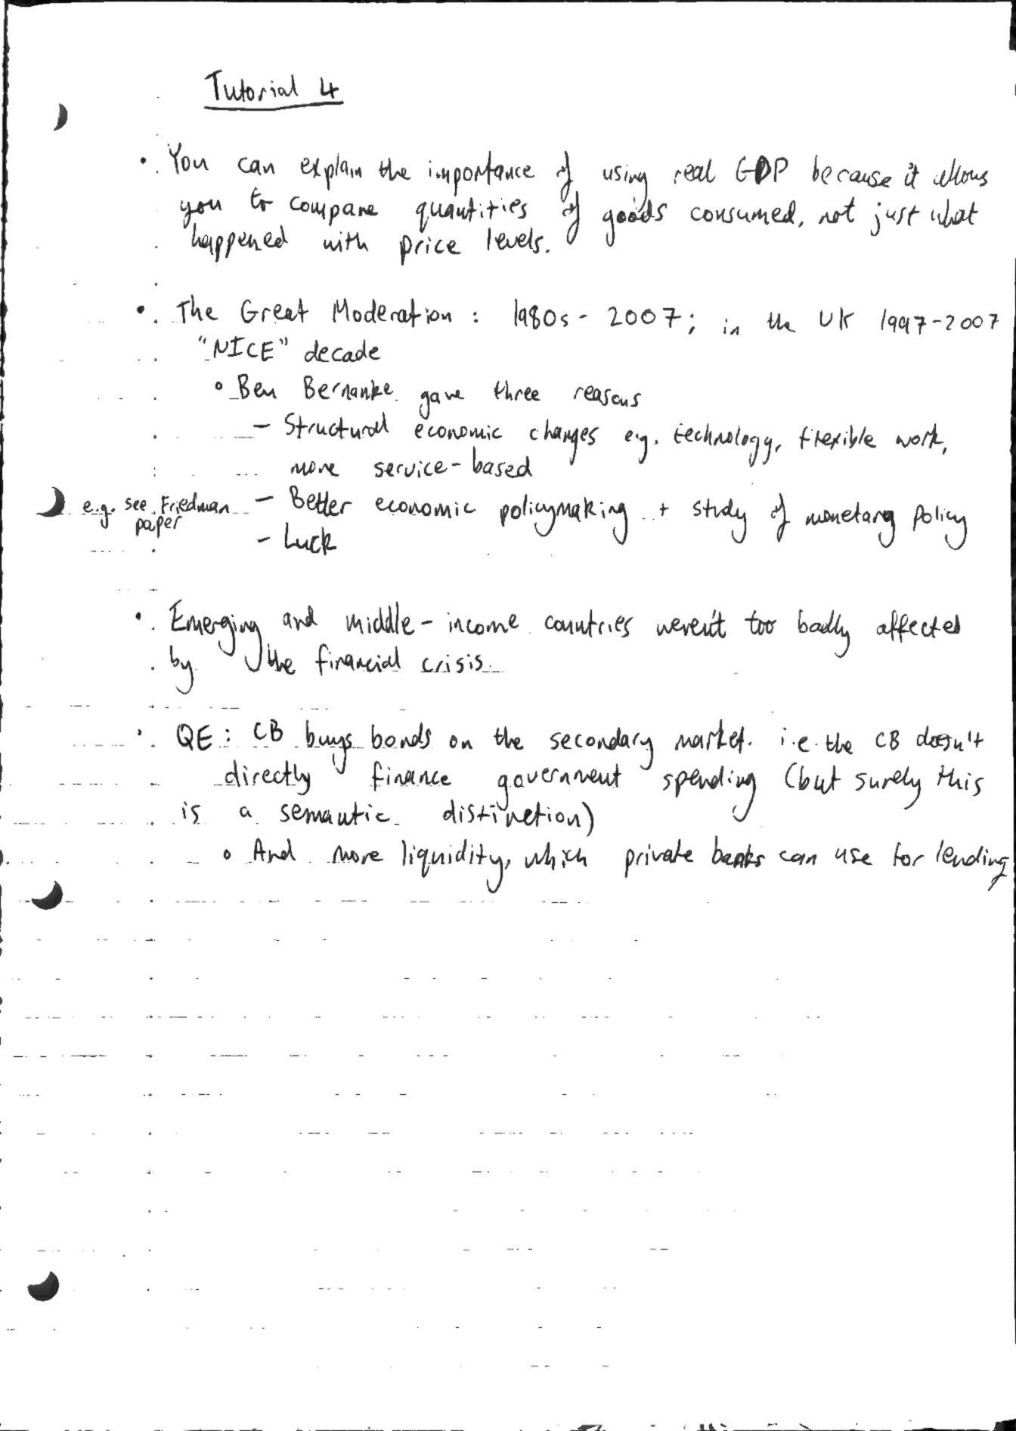 Tutorial 4
• You can explain the importance of using real GDP because it allows
you to compare quantities of goods consumed, not just what
happened with price levels.
• The Great Moderation : 1980s - 2007; in the UK 1997-2007
"NICE" decade
◦ Ben Bernanke gave three reasons
– Structural economic changes e.g. technology, flexible work,
more service-based
e.g. see Friedman paper – Better economic policymaking + study of monetary policy
– Luck
• Emerging and middle-income countries weren't too badly affected
by the financial crisis
• QE : CB buys bonds on the secondary market. i.e. the CB doesn't
directly finance government spending (but surely this
is a semantic distinction)
◦ And more liquidity, which private banks can use for lending